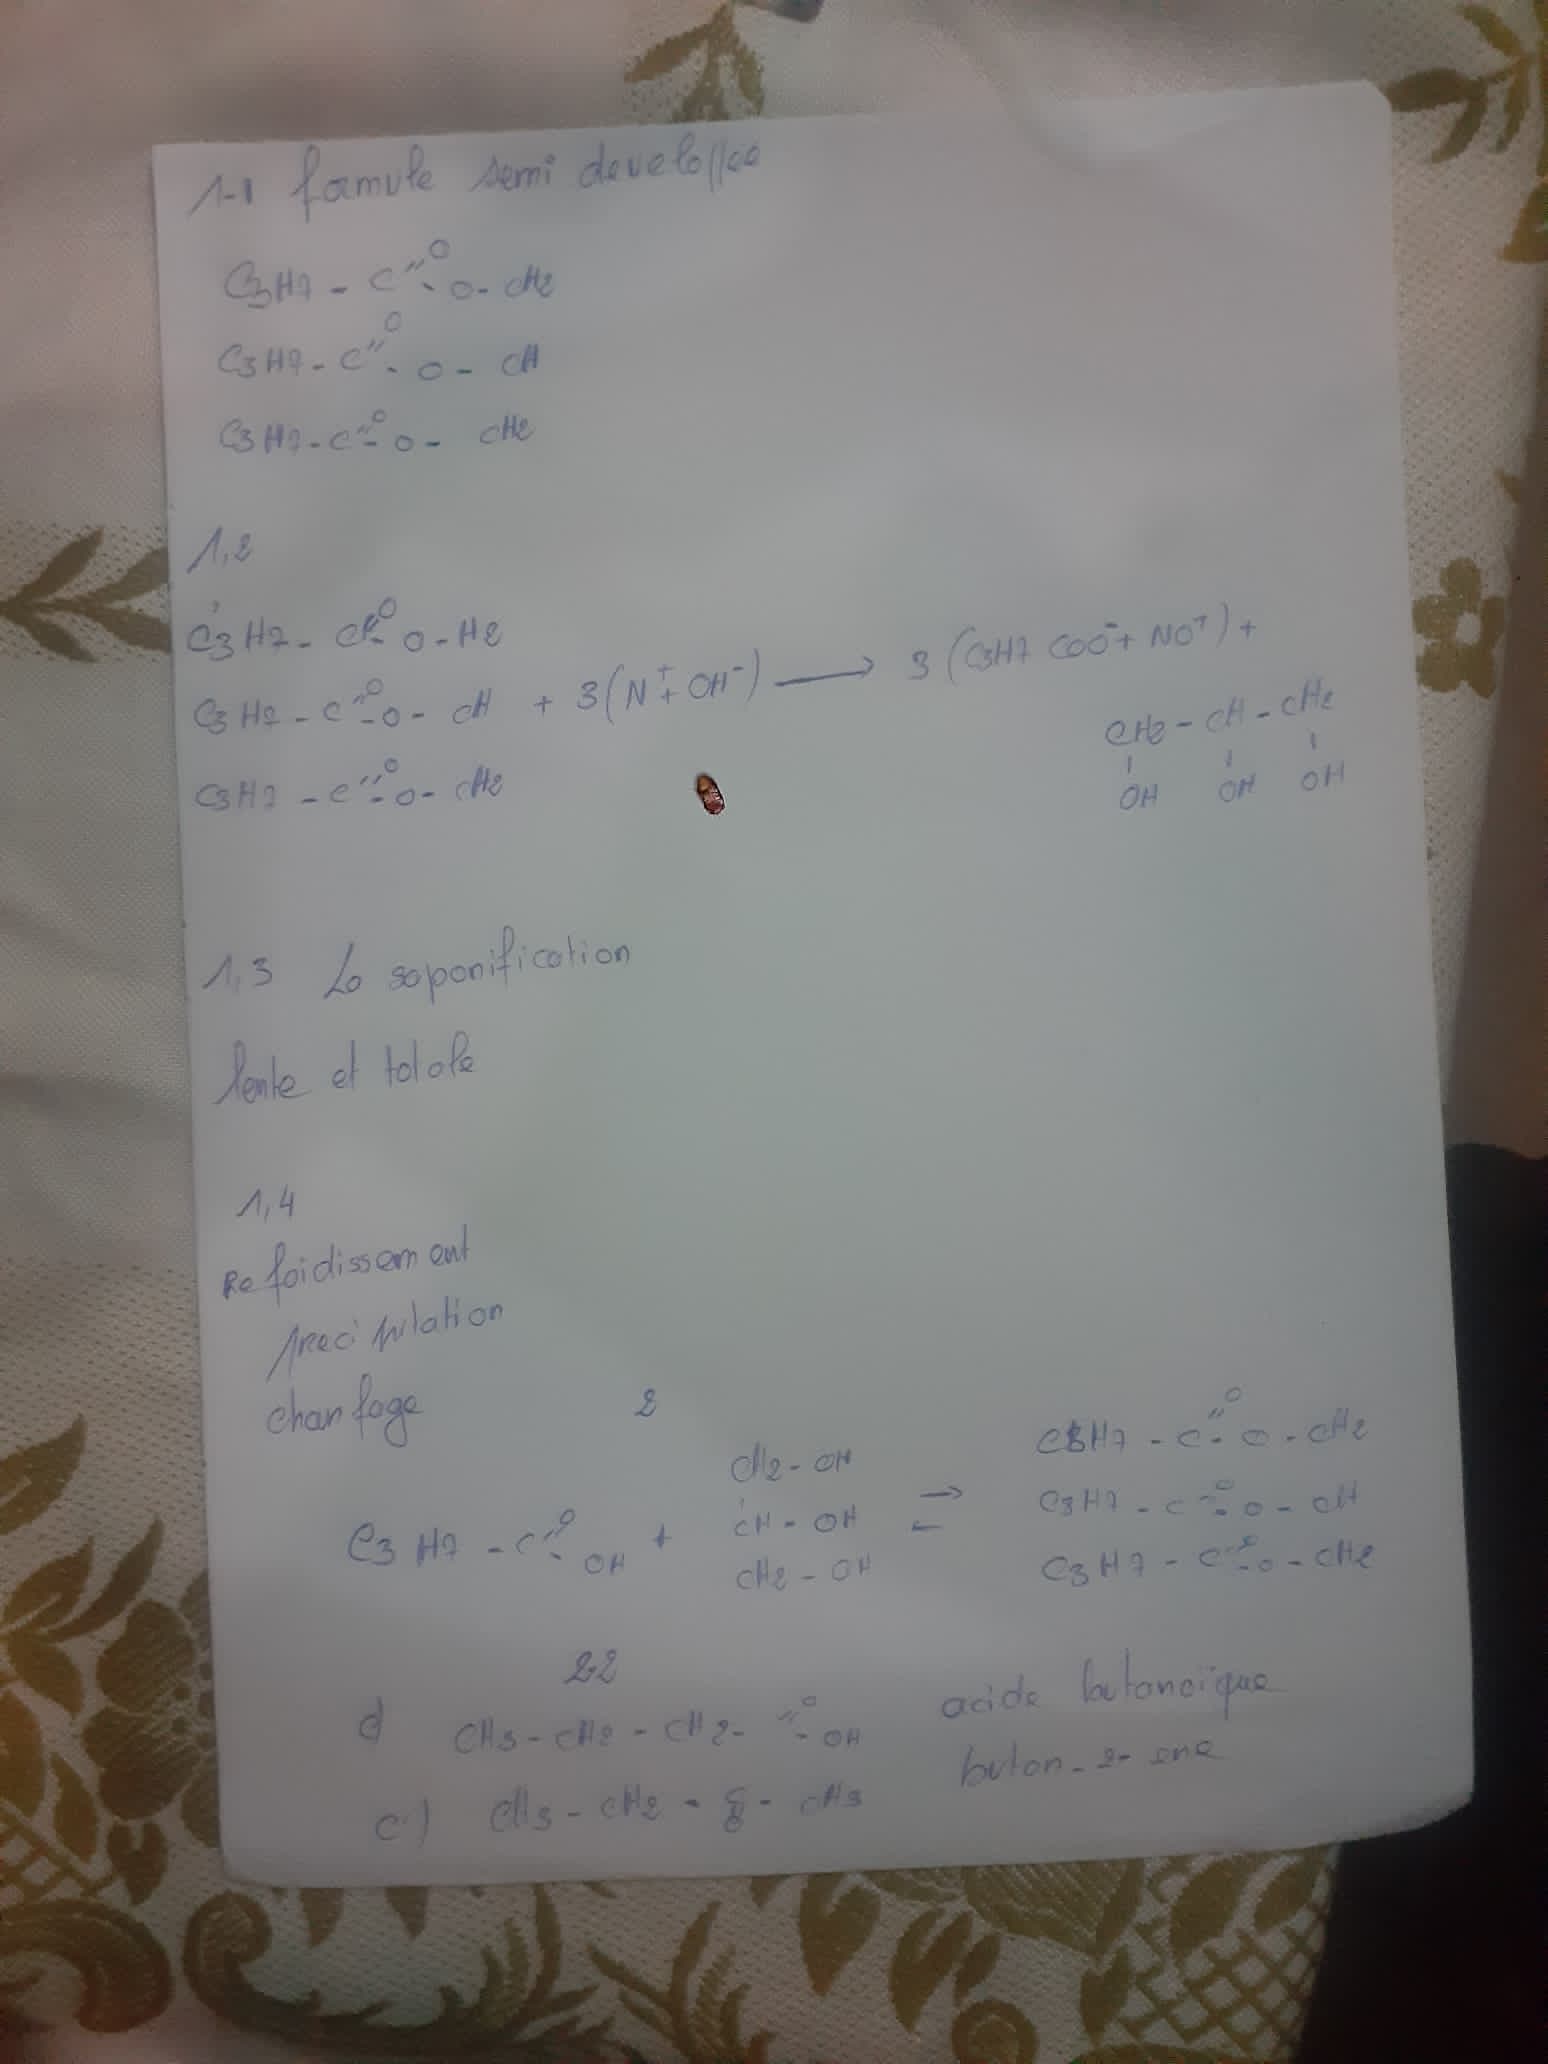 1-1 formule semi developpee
C3H7 - C = O - O - CH2
C3H7 - C = O - O - CH
C3H7 - C = O - O - CH2
1,2
C3H7 - C = O - O - H2
C3H7 - C = O - O - CH + 3(N+ + OH-) → 3(C3H7 COO- + NO+) +
C3H7 - C = O - O - CH2
CH2 - CH - CH2
OH OH OH
1,3 La saponification
lente et totale
1,4
Refoidissement
precipitation
chanfage
2
C3H7 - C = O - OH + CH2 - OH ⇌ C3H7 - C = O - O - CH2
CH - OH C3H7 - C = O - O - CH
CH2 - OH C3H7 - C = O - O - CH2
2-2
d CH3 - CH2 - CH2 - = O - OH acide butanoïque
c) CH3 - CH2 - C - CH3 butan-2-one